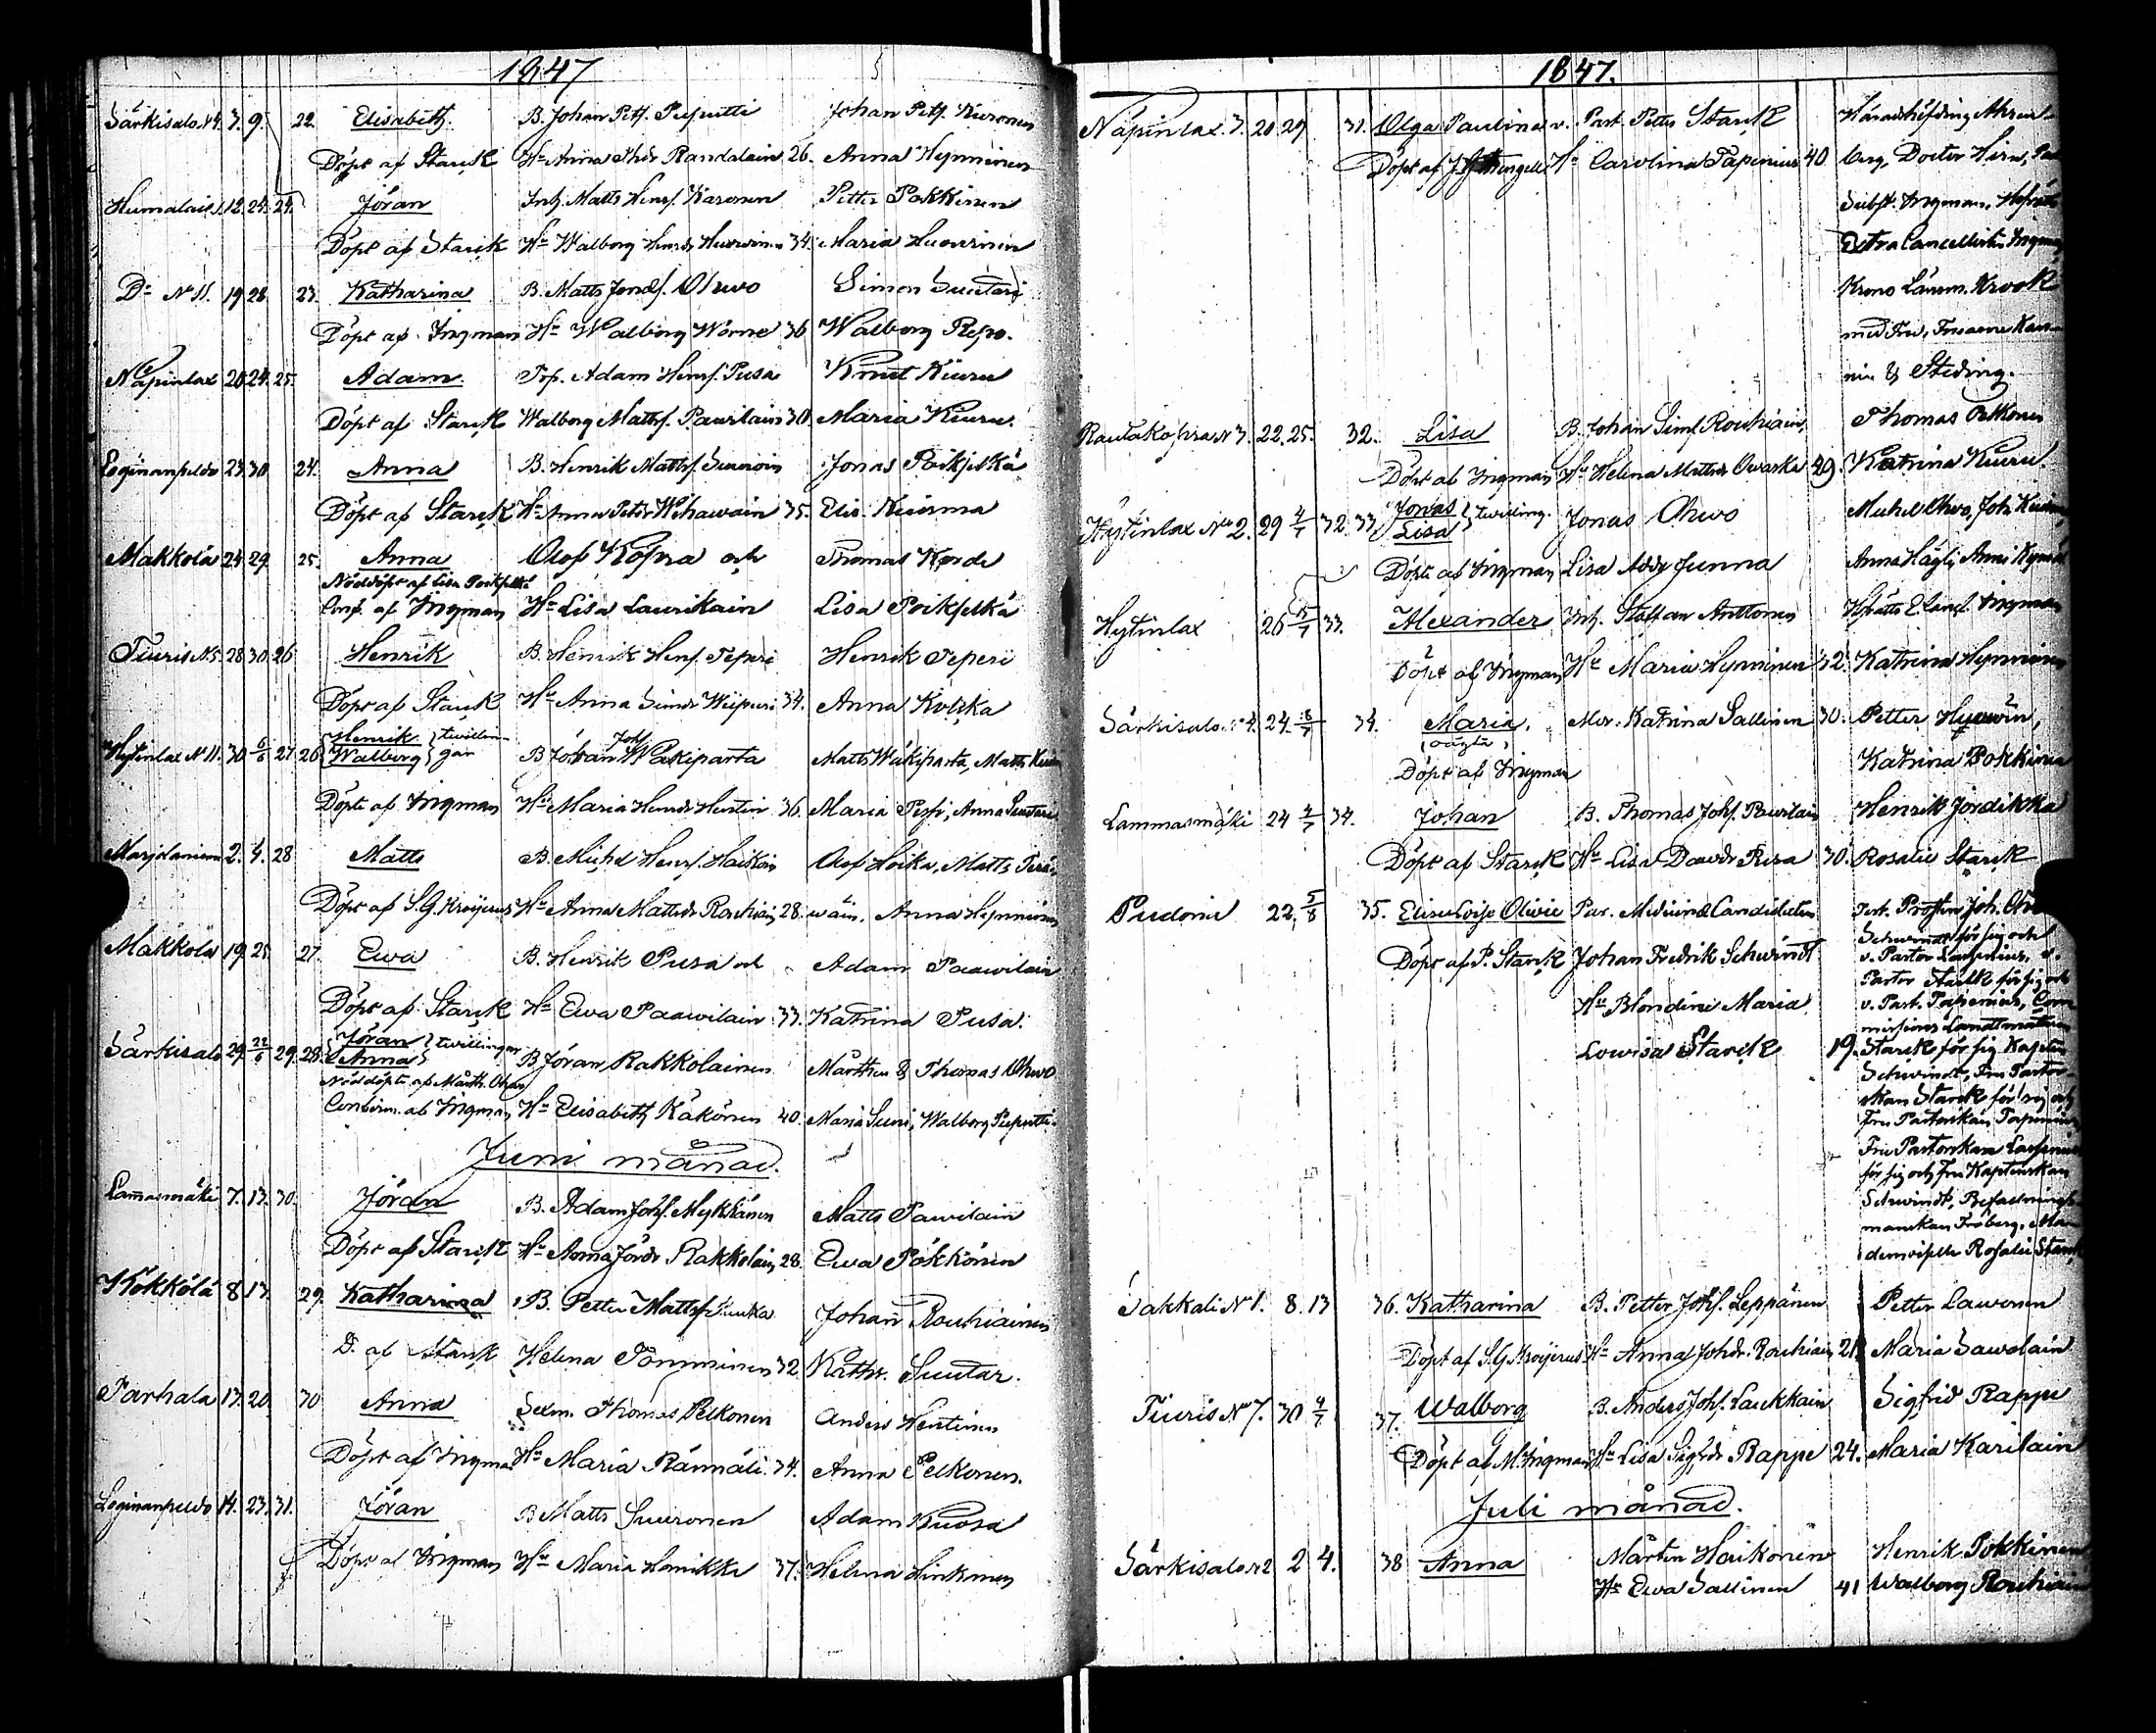 1847
Särkisalo N4. 3. 9. 22. Elisabeth. B. Johan Pett. Puputti Johan Pett. Kuronen
Döpt af Starck Hu Anna Thdr Randalain 26. Anna Hynninen
Humalais 1. 12. 24. 24. Jöran Inh. Matts Henr. Karonen Petter Pokkinen
Döpt af Starck Hu Walborg Henrdr Huowinen 34. Maria Huowinen
Do No 11. 19 28. 23. Katharina B. Matts Jonæs. Ohwo Simon Suutari
Döpt af Ingman Hu Walborg Worne 36 Walborg Repo.
Näpinlax 20. 24. 25. Adam. Torp. Adam Henr. Pusa Knut Kiuru
Döpt af Starck Walborg Matts. Pawilain 30 Maria Kiuru.
Loginanpeldo 23. 30 24. Anna B. Henrik Matts. Jonas Poikselkä
Döpt af Starck Hu Anna Petdr Wihawain 35. Elis. Kuisma
Makkola 24 29. 25. Anna Olof Kopra och Thomas Korde
Nöddöpt af Lisa Poikselkä
Conf. af Ingman Hu Lisa Laurikain Lisa Poikselkä
Tiuris N5. 28 30. 26 Henrik B. Henrik Henr. Teperi Henrik Teperi
Döpt af Starck Hu Anna Simdr Wiipuri 34. Anna Kolkka
Hytinlax N 11. 30 6/6 27 26 Henrik Walborg twillingar B Johan Joh. Wäkiparta Matts Wäkiparta, Matts
Döpte af Ingman Hu Maria Henrdr Hentin 36. Maria Anna Suutari
Marjolaniemi 2. 4. 28 Matts B. Michel Henr. Haikoin Olof Hoika, Matts
Döpt af S.G. Kroijerus Hu Anna Mattsdr Rouhiai 28. wäin. Anna Hynninen
Makkola 19. 25. 27. Ewa B. Henrik Pusa och Adam Paawilain
Döpt af Starck Hu Ewa Paawilain 33. Katrina Pusa.
Särkisalo 29. 22/6 29. 28. Jöran Anna twillingar B Jöran Rakkolainen Mårthen & Thomas Ohwo
Nöddöpte af Mårth. Ohwo
Confirm. af Ingman Hu Elisabeth Käkönen 40. Maria Suni, Walborg Puputti.
Juni månad.
Lamasmäki 7. 13. 30. Jöran B. Adam Joh. Mykkänen Matts Pawilain
Döpt af Starck Hu Anna Jördr Rakkolain 28. Ewa Pökkönen
Kökkölä 8 13. 29. Katharina B. Petter Matts. Suuka Johan Rouhiainen
D. af Starck Helena Tomminen 32. Kathr. Suutar.
Tarhala 13. 20. 30 Anna Sexm. Thomas Pelkonen Anders Hentinen
Döpt af Ingman Hu Maria Rämnäli 34. Anna Pelkonen.
Loginanpeldo 14. 23. 31. Jöran B Matts Suuronen Adam Kuosa
Döpt af Ingman Hu Maria Hamikka 37. Helena Hinkinen
1847.
Näpinlax 3. 20. 29 31. Olga Paulina v. Past. Petter Starck Häradshöfding Ahren-
Döpt af Hu Carolina Tapenius 40 berg, Doctor Hirn,
Subst. Ingman,
Extra Cancellisten Ingman
Krono Länsm. Krook
med Fru,
nin & Steding.
Rautakopra N 3. 22. 25. 32. Lisa B. Johan Sims. Rouhiain, Thomas Pelkonen
Döpt af Ingman Hu Helena Mattsdr Owaska 29. Katrina Kiuru.
Hytinlax No 2. 29 4/7 32. 33 Jonas Lisa twilling. Jonas Ohwo Michel Ohwo, Joh.
Döpte af Ingman Lisa Addr Junna Anna Hägli, Anna
Hytinlax 26 15/7 33. Alexander Inh. Staffan Anttonen Ingman
Döpt af Ingman Hu Maria Hynninen 32. Katrina Hynninen
Särkisalo No 4. 24. 18/7 34. Maria. Mor: Katrina Sallinen 30. Petter
(oägta)
Döpt af Ingman Katrina Pokkinen
Lammasmäki 24 4/7 34. Johan B. Thomas Joh. Pawilain Henrik Jordikka
Döpt af Starck Hu Lisa Dawdr Risa 30. Rosalie Starck
Pudoria 22. 5/8 35. Elise Loise Olivie Par. Medicinæ Candidaten Prosten Joh.
Döpt af P. Starck Johan Fredrik Schwindt Schwindt för sig och
v. Pastor
Hu Blondine Maria Pastor Starck för sig och
v. Past. Tapenius, Com-
missions Landtmätaren
Lowisa Starck 19. Starck för sig Kapten
Schwindt, Fru Pastor-
skan Starck för sig och
Fru Pastorskan Tapenius
Fru Pastorskan
för sig och Fru Kaptenskan
Schwindt, Befallnings-
manskan Fröberg, Ma-
demoiselle Rosalie Starck
Sakkali No 1. 8. 13 36. Katharina B. Petter Joh. Leppänen Petter Lawonen
Döpt af S.G. Kroijerus Hu Anna Johdr. Rouhiain 21. Maria Sawolain
Tiuris No 7. 30 4/7 37. Walborg B. Anders Joh. Laukkain Sigfrid Rappe
Döpt af M. Ingman Hu Lisa Sigfdr Rappe 24. Maria Karilain
Juli månad.
Särkisalo N2 2 4. 38 Anna Mårten Haikonen Henrik Pokkinen
Hu Ewa Sallinen 41 Walborg Rouhiain